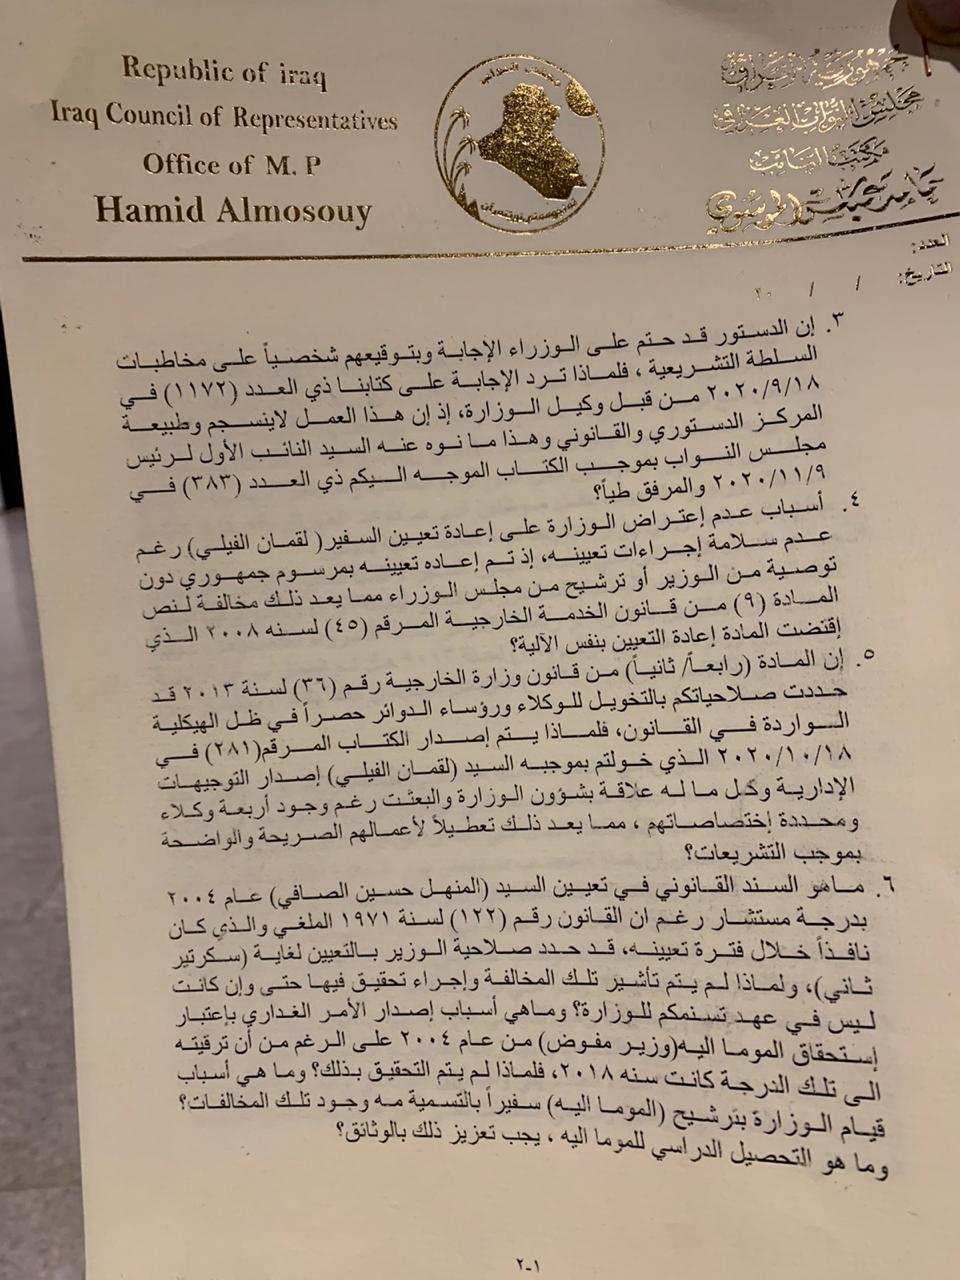 Republic of iraq
Iraq Council of Representatives
Office of M. P
Hamid Almosouy
جمهورية العراق
مجلس النواب العراقي
مكتب النائب
حامد عباس الموسوي
العدد:
التاريخ: / / ٢٠
٣. إن الدستور قد حتم على الوزراء الإجابة وبتوقيعهم شخصياً على مخاطبات
السلطة التشريعية ، فلماذا ترد الإجابة على كتابنا ذي العدد (١١٧٢) في
٢٠٢٠/٩/١٨ من قبل وكيل الوزارة، إذ إن هذا العمل لاينسجم وطبيعة
المركز الدستوري والقانوني وهذا ما نوه عنه السيد النائب الأول لرئيس
مجلس النواب بموجب الكتاب الموجه اليكم ذي العدد (٣٨٣) في
٢٠٢٠/١١/٩ والمرفق طياً؟
٤. أسباب عدم إعتراض الوزارة على إعادة تعيين السفير( لقمان الفيلي) رغم
عدم سلامة إجراءات تعيينه، إذ تم إعاده تعيينه بمرسوم جمهوري دون
توصية من الوزير أو ترشيح من مجلس الوزراء مما يعد ذلك مخالفة لنص
المادة (٩) من قانون الخدمة الخارجية المرقم (٤٥) لسنه ٢٠٠٨ الذي
إقتضت المادة إعادة التعيين بنفس الآلية؟
٥. إن المادة (رابعاً/ ثانياً) من قانون وزارة الخارجية رقم (٣٦) لسنة ٢٠١٣ قد
حددت صلاحياتكم بالتخويل للوكلاء ورؤساء الدوائر حصراً في ظل الهيكلية
الواردة في القانون، فلماذا يتم إصدار الكتاب المرقم(٢٨١) في
٢٠٢٠/١٠/١٨ الذي خولتم بموجبه السيد (لقمان الفيلي) إصدار التوجيهات
الإدارية وكل ما له علاقة بشؤون الوزارة والبعثت رغم وجود أربعة وكلاء
ومحددة إختصاصاتهم ، مما يعد ذلك تعطيلاً لأعمالهم الصريحة والواضحة
بموجب التشريعات؟
٦. ماهو السند القانوني في تعيين السيد (المنهل حسين الصافي) عام ٢٠٠٤
بدرجة مستشار رغم ان القانون رقم (١٢٢) لسنة ١٩٧١ الملغي والذي كان
نافذاً خلال فترة تعيينه، قد حدد صلاحية الوزير بالتعيين لغاية (سكرتير
ثاني)، ولماذا لم يتم تأشير تلك المخالفة وإجراء تحقيق فيها حتى وإن كانت
ليس في عهد تسنمكم للوزارة؟ وماهي أسباب إصدار الأمر الغداري بإعتبار
إستحقاق الموما اليه(وزير مفوض) من عام ٢٠٠٤ على الرغم من أن ترقيته
الى تلك الدرجة كانت سنه ٢٠١٨، فلماذا لم يتم التحقيق بذلك؟ وما هي أسباب
قيام الوزارة بترشيح (الموما اليه) سفيراً بالتسمية مه وجود تلك المخالفات؟
وما هو التحصيل الدراسي للموما اليه ، يجب تعزيز ذلك بالوثائق؟
٢-١